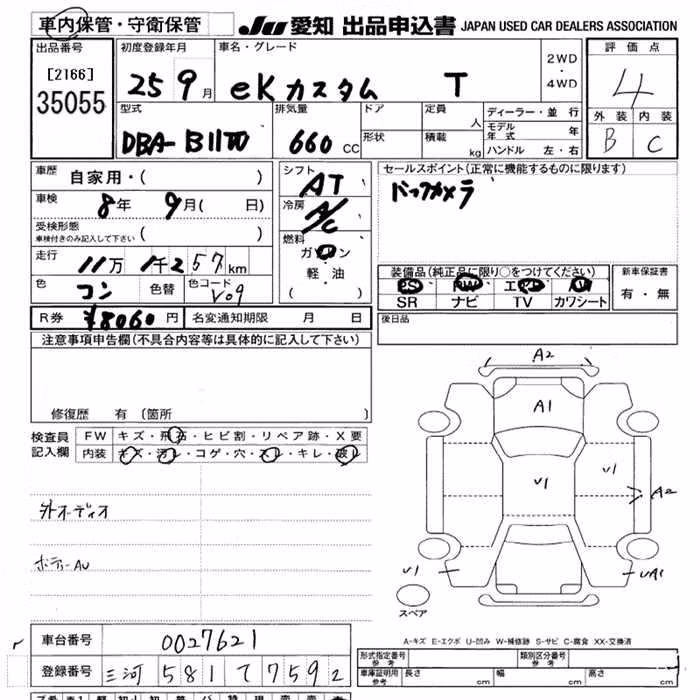 車内保管・守衛保管
JU 愛知 出品申込書 JAPAN USED CAR DEALERS ASSOCIATION
出品番号
[2166]
35055
初度登録年月
25 9月
車名・グレード
eKカスタム T
2WD
・
4WD
評価点
4
外装 内装
B C
型式
DBA-B11W
排気量
660 CC
ドア
形状
定員 人
積載 kg
ディーラー・並行
モデル年式 年
ハンドル 左・右
車歴 自家用・( )
車検 8年 9月( 日)
受検形態
車検付きのみ記入して下さい ( )
走行 11万 1千257km
色 コン 色替 色コード V09
R券 ¥8060円 名変通知期限 月 日
シフト
AT
冷房
A/C
燃料
ガソリン
軽・油
( )
セールスポイント(正常に機能するものに限ります)
バックカメラ
装備品(純正品に限り○をつけてください)
PS PW エアB AW
SR ナビ TV カワシート
新車保証書
有・無
後日品
注意事項申告欄(不具合内容等は具体的に記入して下さい)
修復歴 有 (箇所 )
検査員記入欄
FW キズ・飛石・ヒビ割・リペア跡・X要
内装 キズ・汚レ・コゲ・穴・スレ・キレ・破レ
外オーディオ
ボデーAU
A2
A1
V1
V1
A2
V1
UA1
スペア
A-キズ E-エクボ U-凹み W-補修跡 S-サビ C-腐食 XX-交換済
車台番号 0027621
登録番号 三河 581 て 7592
形式指定番号 参考
類別区分番号 参考
車庫証明用 参考 長さ cm 幅 cm 高さ cm